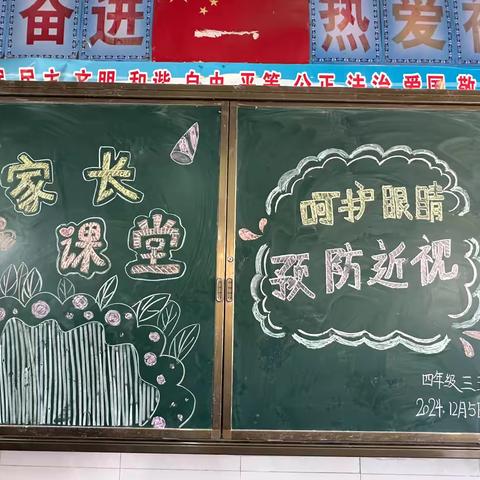 奋进
热爱
民主 文明 和谐 自由 平等 公正 法治 爱国 敬
家长
课堂
呵护眼睛
预防近视
四年级三
2024.12月5日